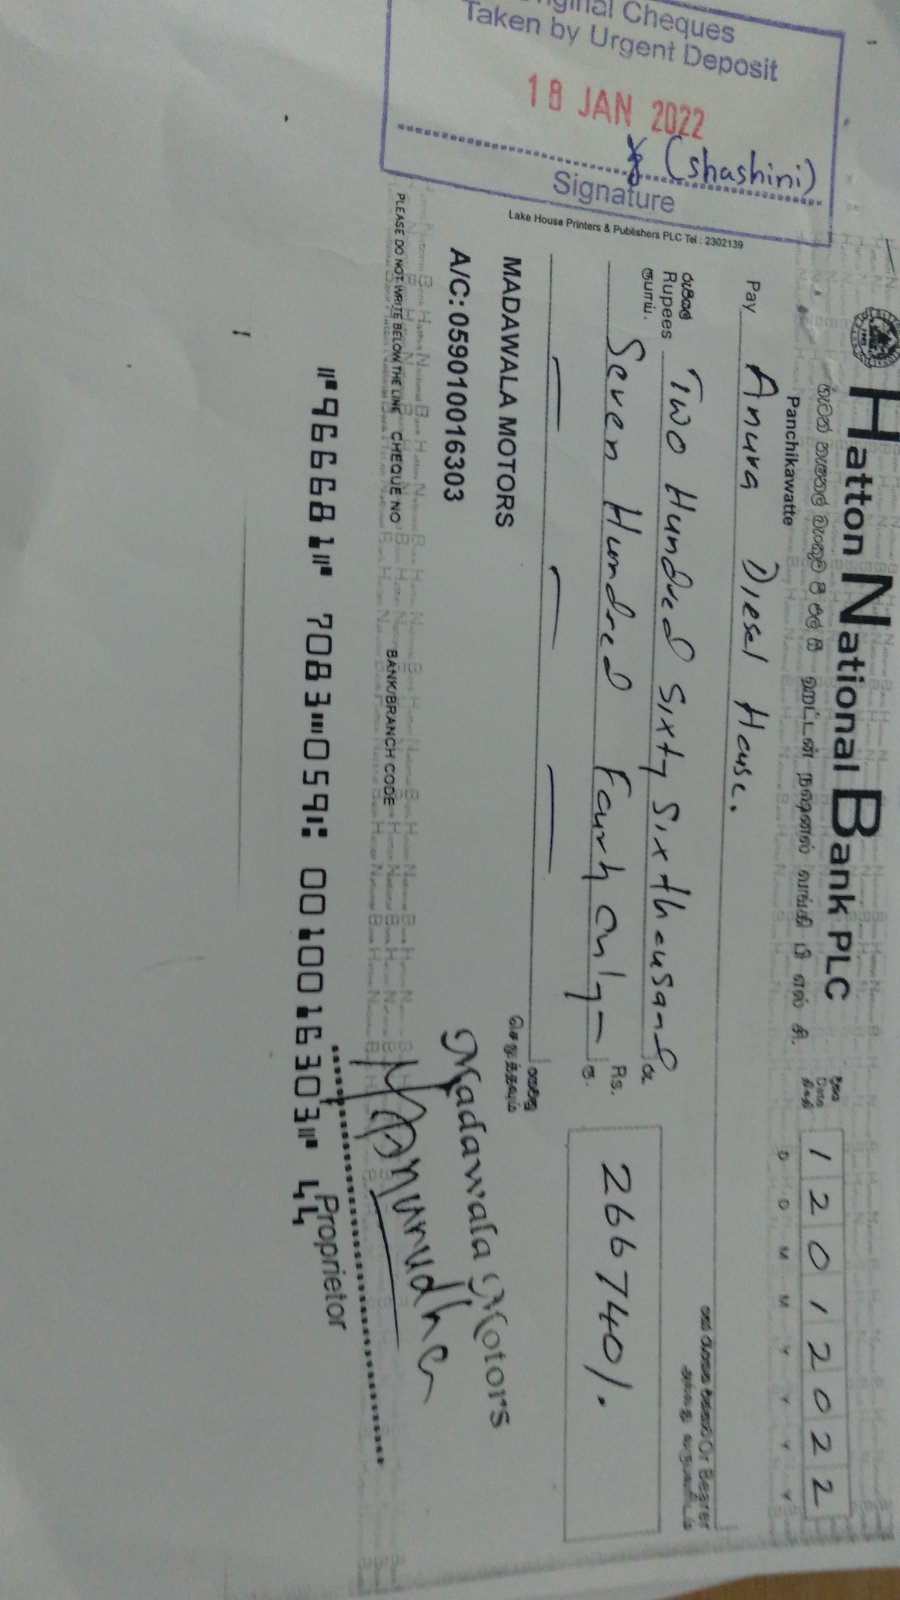 Original Cheques
Taken by Urgent Deposit
18 JAN 2022
(Shashini)
Signature
Lake House Printers & Publishers PLC Tel : 2302139
Hatton National Bank PLC
හැටන් නැෂනල් බැංකුව පී එල් සී ஹட்டன் நஷனல் வங்கி பி எல் சி.
Panchikawatte
දිනය
Date
திகதி
1 2 0 1 2 0 2 2
D D M M Y Y Y Y
Pay Anura Diesel House.
Or Bearer
රුපියල්
Rupees Two Hundred Sixty Six thousand
ரூபாய்.
Seven Hundred Fourty only-
රු
Rs.
ரூ.
266740/.
MADAWALA MOTORS
A/C: 059010016303
Madawala Motors
Proprietor
PLEASE DO NOT WRITE BELOW THE LINE CHEQUE NO BANK/BRANCH CODE
⑈966681⑈ 7083⑉059⑆ 0010016303⑈ 44